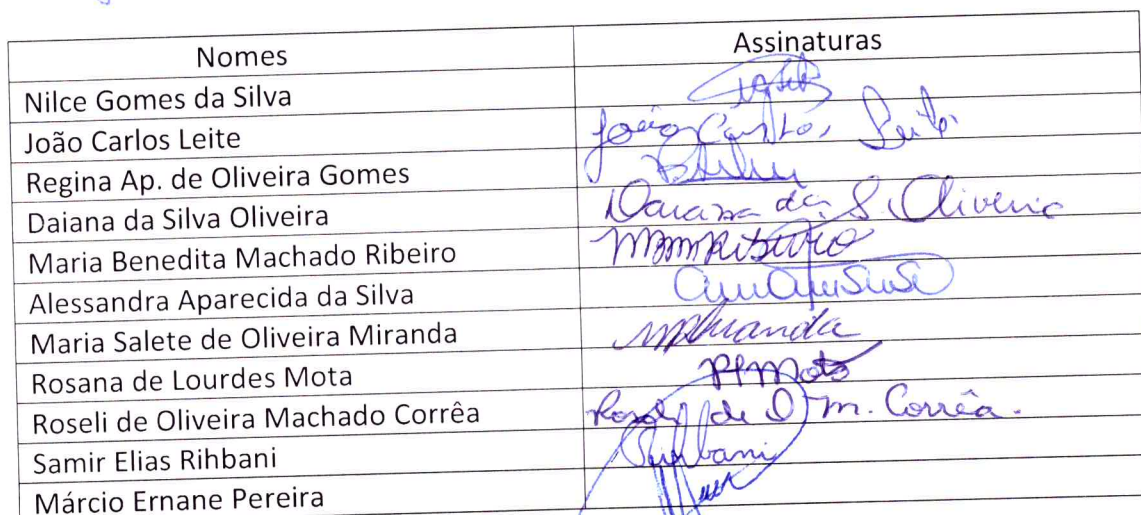 Nomes Assinaturas
Nilce Gomes da Silva
João Carlos Leite João Carlos Leite
Regina Ap. de Oliveira Gomes
Daiana da Silva Oliveira Daiana da S. Oliveira
Maria Benedita Machado Ribeiro MBMRibeiro
Alessandra Aparecida da Silva
Maria Salete de Oliveira Miranda Miranda
Rosana de Lourdes Mota Mota
Roseli de Oliveira Machado Corrêa Roseli de O. M. Corrêa.
Samir Elias Rihbani Rihbani
Márcio Ernane Pereira